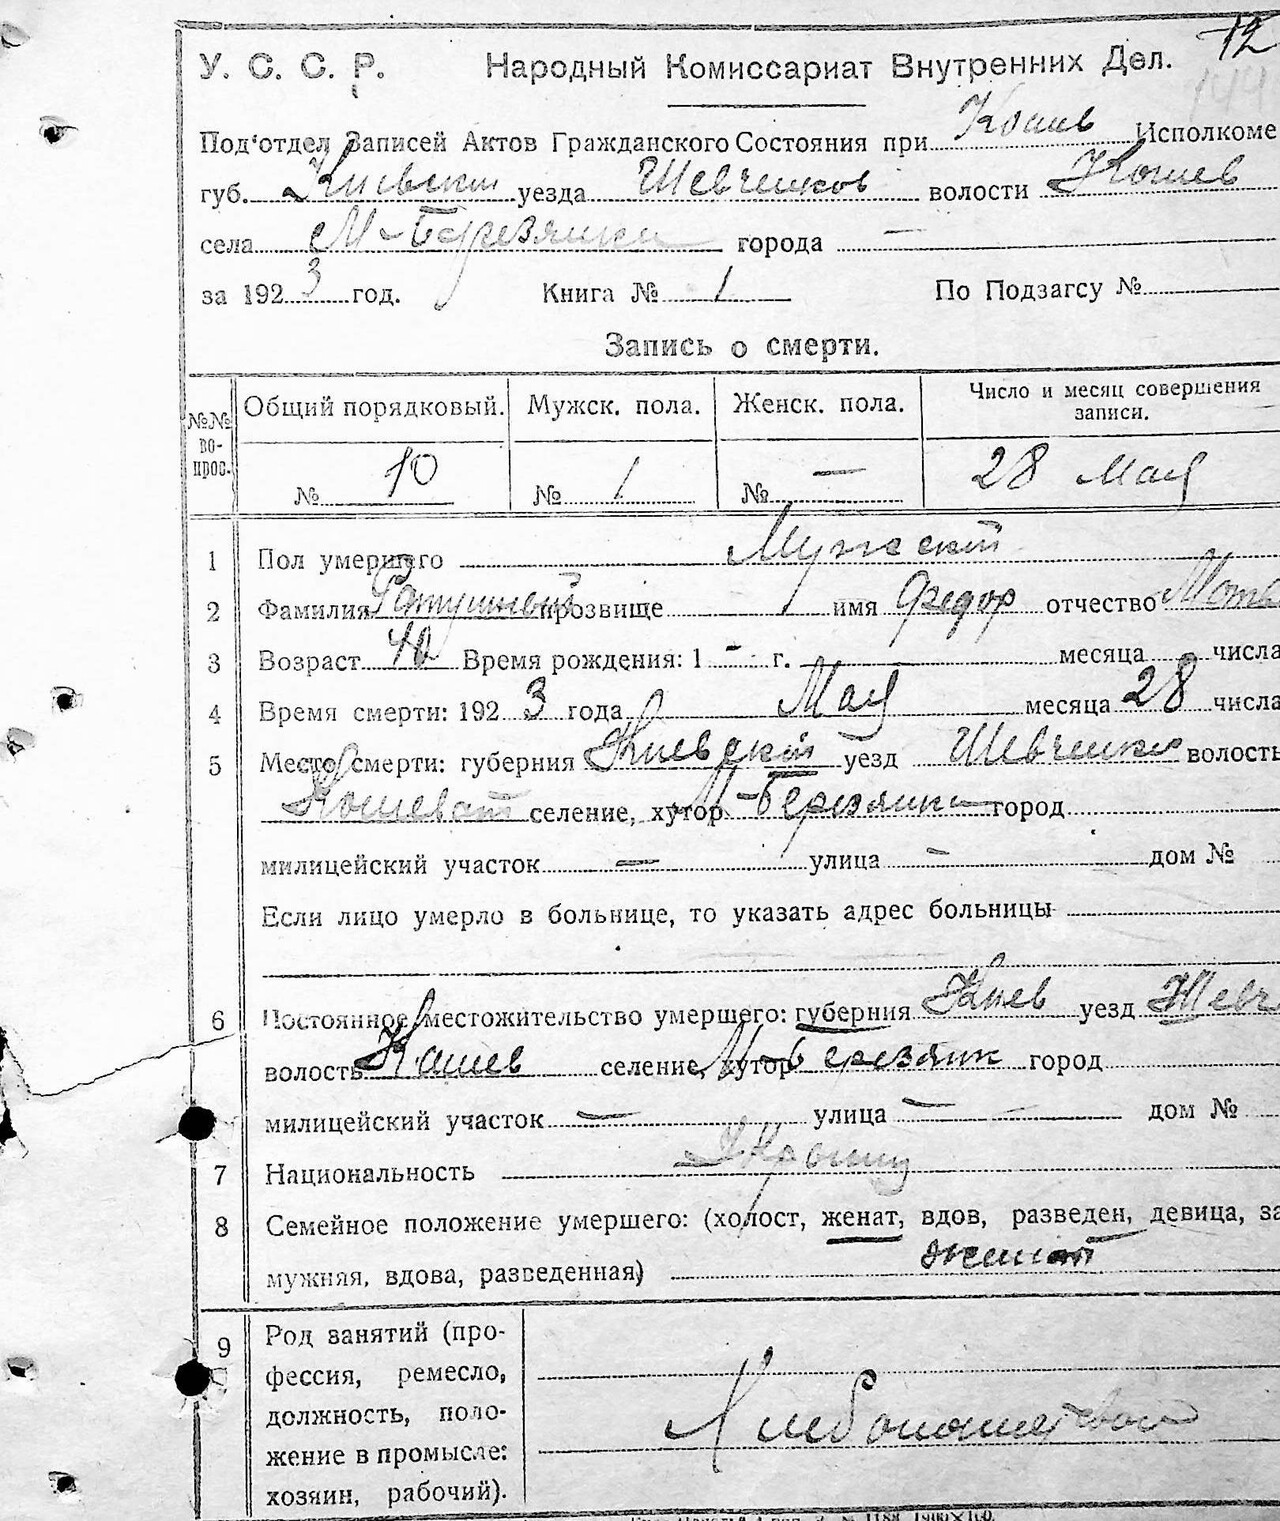 12
144
У. С. С. Р. Народный Комиссариат Внутренних Дел.
Под'отдел Записей Актов Гражданского Состояния при Кошев Исполкоме
губ. Киевский уезда Шевченков волости Кошев
села М-Березянка города —
за 1923 год. Книга № 1 По Подзагсу №
Запись о смерти.
№№ во- прос. Общий порядковый. Мужск. пола. Женск. пола. Число и месяц совершения
записи.
№ 10 № 1 № — 28 Мая
1 Пол умершего Мужской
2 Фамилия Ратушный прозвище имя Федор отчество
3 Возраст 40 Время рождения: 1 - г. месяца числа
4 Время смерти: 1923 года Мая месяца 28 числа
5 Место смерти: губерния Киевский уезд Шевченко волость
Кошеват селение, хутор М-Березянка город
милицейский участок — улица — дом №
Если лицо умерло в больнице, то указать адрес больницы
6 Постоянное местожительство умершего: губерния Киев уезд Шевч
волость Кошев селение, хутор М-Березянк город
милицейский участок — улица — дом №
7 Национальность Украинц
8 Семейное положение умершего: (холост, женат, вдов, разведен, девица, за
мужняя, вдова, разведенная) женат
9 Род занятий (про-
фессия, ремесло,
должность, поло-
жение в промысле:
хозяин, рабочий).